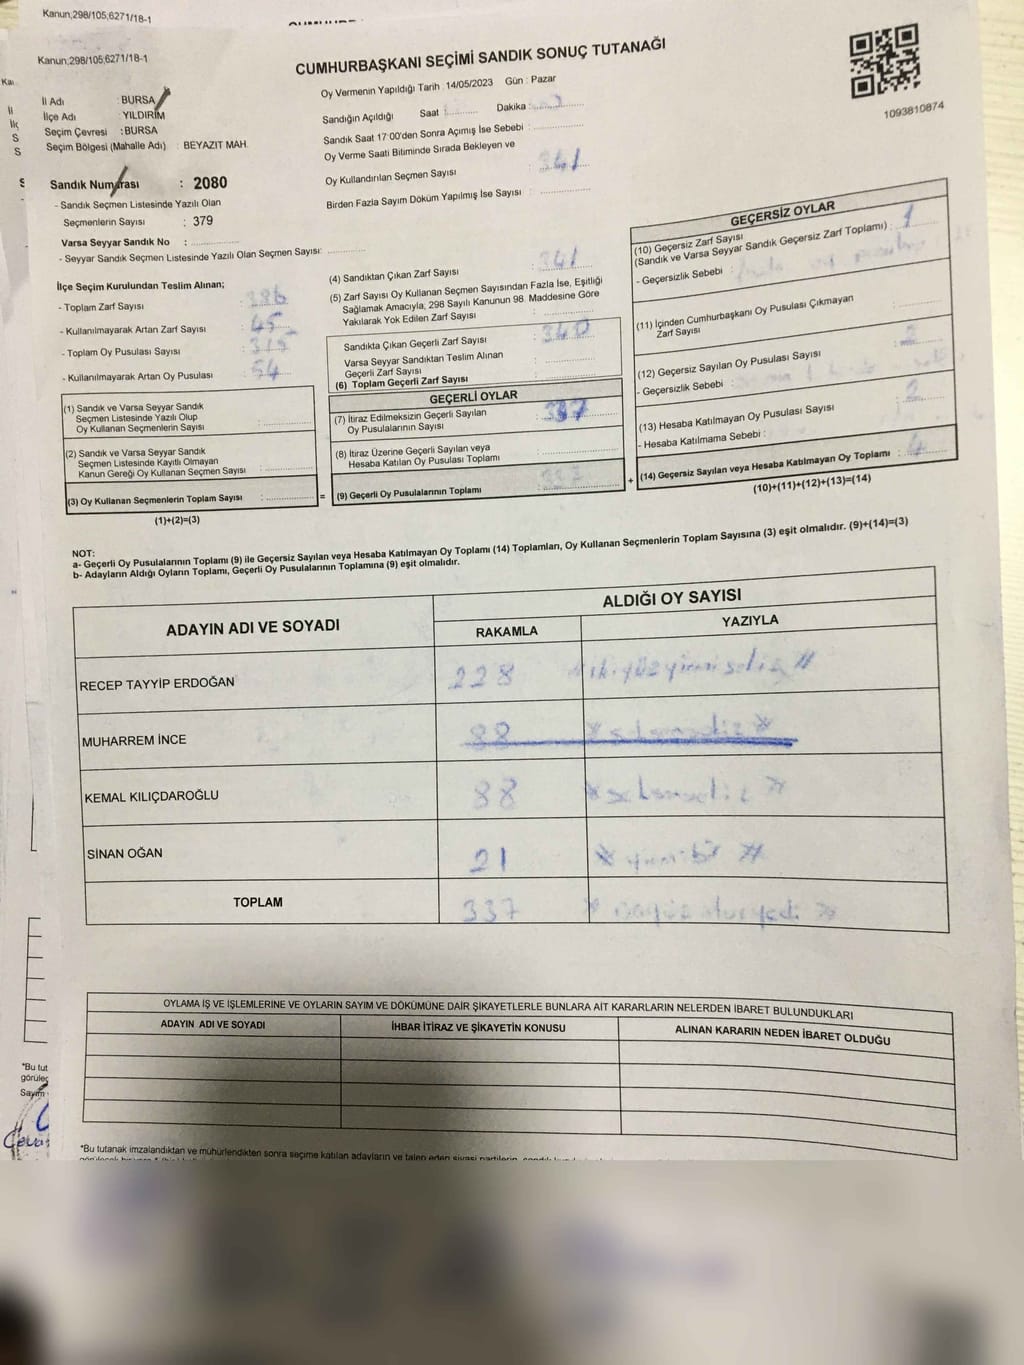 Kanun;298/105;6271/18-1
Kanun;298/105;6271/18-1
CUMHURBAŞKANI SEÇİMİ SANDIK SONUÇ TUTANAĞI
1093810874
İl Adı : BURSA
İlçe Adı : YILDIRIM
Seçim Çevresi : BURSA
Seçim Bölgesi (Mahalle Adı) : BEYAZIT MAH.
Sandık Numarası : 2080
- Sandık Seçmen Listesinde Yazılı Olan
Seçmenlerin Sayısı : 379
Varsa Seyyar Sandık No :
- Seyyar Sandık Seçmen Listesinde Yazılı Olan Seçmen Sayısı:
İlçe Seçim Kurulundan Teslim Alınan;
- Toplam Zarf Sayısı : 386
- Kullanılmayarak Artan Zarf Sayısı : 45
- Toplam Oy Pusulası Sayısı :
- Kullanılmayarak Artan Oy Pusulası : 54
(1) Sandık ve Varsa Seyyar Sandık
Seçmen Listesinde Yazılı Olup
Oy Kullanan Seçmenlerin Sayısı :
(2) Sandık ve Varsa Seyyar Sandık
Seçmen Listesinde Kayıtlı Olmayan
Kanun Gereği Oy Kullanan Seçmen Sayısı :
(3) Oy Kullanan Seçmenlerin Toplam Sayısı : =
(1)+(2)=(3)
Oy Vermenin Yapıldığı Tarih : 14/05/2023 Gün : Pazar
Sandığın Açıldığı Saat : Dakika :
Sandık Saat 17:00'den Sonra Açımış İse Sebebi :
Oy Verme Saati Bitiminde Sırada Bekleyen ve
Oy Kullandırılan Seçmen Sayısı : 341
Birden Fazla Sayım Döküm Yapılmış İse Sayısı :
(4) Sandıktan Çıkan Zarf Sayısı : 341
(5) Zarf Sayısı Oy Kullanan Seçmen Sayısından Fazla İse, Eşitliği
Sağlamak Amacıyla, 298 Sayılı Kanunun 98. Maddesine Göre
Yakılarak Yok Edilen Zarf Sayısı :
Sandıkta Çıkan Geçerli Zarf Sayısı : 340
Varsa Seyyar Sandıktan Teslim Alınan
Geçerli Zarf Sayısı :
(6) Toplam Geçerli Zarf Sayısı :
GEÇERLİ OYLAR
(7) İtiraz Edilmeksizin Geçerli Sayılan : 337
Oy Pusulalarının Sayısı
(8) İtiraz Üzerine Geçerli Sayılan veya
Hesaba Katılan Oy Pusulası Toplamı :
(9) Geçerli Oy Pusulalarının Toplamı : 337 +
GEÇERSİZ OYLAR
(10) Geçersiz Zarf Sayısı
(Sandık ve Varsa Seyyar Sandık Geçersiz Zarf Toplamı) : 1
- Geçersizlik Sebebi :
(11) İçinden Cumhurbaşkanı Oy Pusulası Çıkmayan
Zarf Sayısı :
(12) Geçersiz Sayılan Oy Pusulası Sayısı : 2
- Geçersizlik Sebebi :
(13) Hesaba Katılmayan Oy Pusulası Sayısı : 2
- Hesaba Katılmama Sebebi :
(14) Geçersiz Sayılan veya Hesaba Katılmayan Oy Toplamı : 4
(10)+(11)+(12)+(13)=(14)
NOT:
a- Geçerli Oy Pusulalarının Toplamı (9) ile Geçersiz Sayılan veya Hesaba Katılmayan Oy Toplamı (14) Toplamları, Oy Kullanan Seçmenlerin Toplam Sayısına (3) eşit olmalıdır. (9)+(14)=(3)
b- Adayların Aldığı Oyların Toplamı, Geçerli Oy Pusulalarının Toplamına (9) eşit olmalıdır.
ADAYIN ADI VE SOYADI ALDIĞI OY SAYISI
RAKAMLA YAZIYLA
RECEP TAYYİP ERDOĞAN 228 ikiyüzyirmisekiz
MUHARREM İNCE 88 seksensekiz
KEMAL KILIÇDAROĞLU 88 seksensekiz
SİNAN OĞAN 21 yirmibir
TOPLAM 337 üçyüzotuzyedi
OYLAMA İŞ VE İŞLEMLERİNE VE OYLARIN SAYIM VE DÖKÜMÜNE DAİR ŞİKAYETLERLE BUNLARA AİT KARARLARIN NELERDEN İBARET BULUNDUKLARI
ADAYIN ADI VE SOYADI İHBAR İTİRAZ VE ŞİKAYETİN KONUSU ALINAN KARARIN NEDEN İBARET OLDUĞU
*Bu tut
görüleç
Sayım
*Bu tutanak imzalandıktan ve mühürlendikten sonra seçime katılan adayların ve talep eden siyasi partilerin